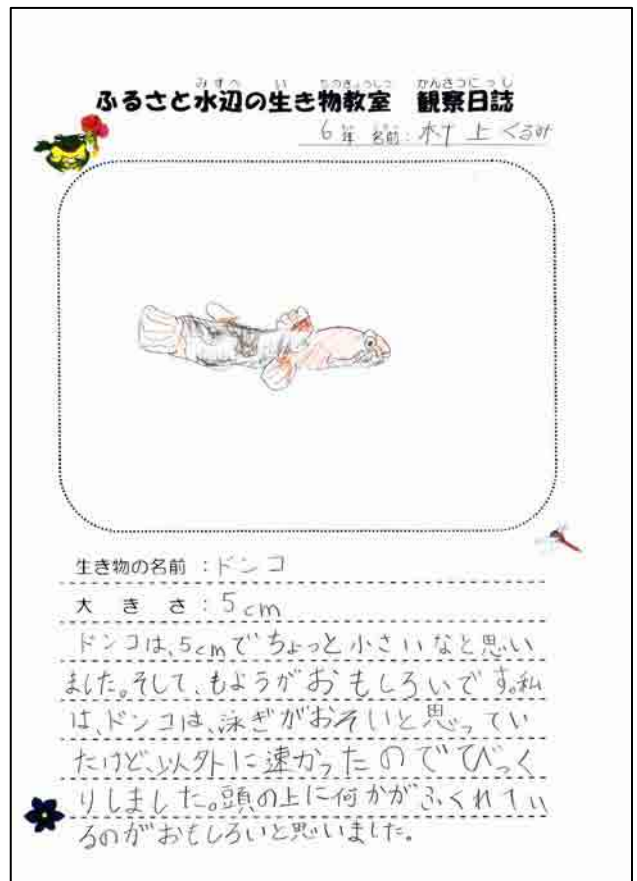 みずべ い ものきょうしつ かんさつにっし
ふるさと水辺の生き物教室 観察日誌
6年 名前: 村上くるみ
生き物の名前 : ドンコ
大きさ : 5cm
ドンコは、5cmでちょっと小さいなと思い
ました。そして、もようがおもしろいです。私
は、ドンコは、泳ぎがおそいと思ってい
たけど、以外に速かったのでびっく
りしました。頭の上に何かがふくれてい
るのがおもしろいと思いました。